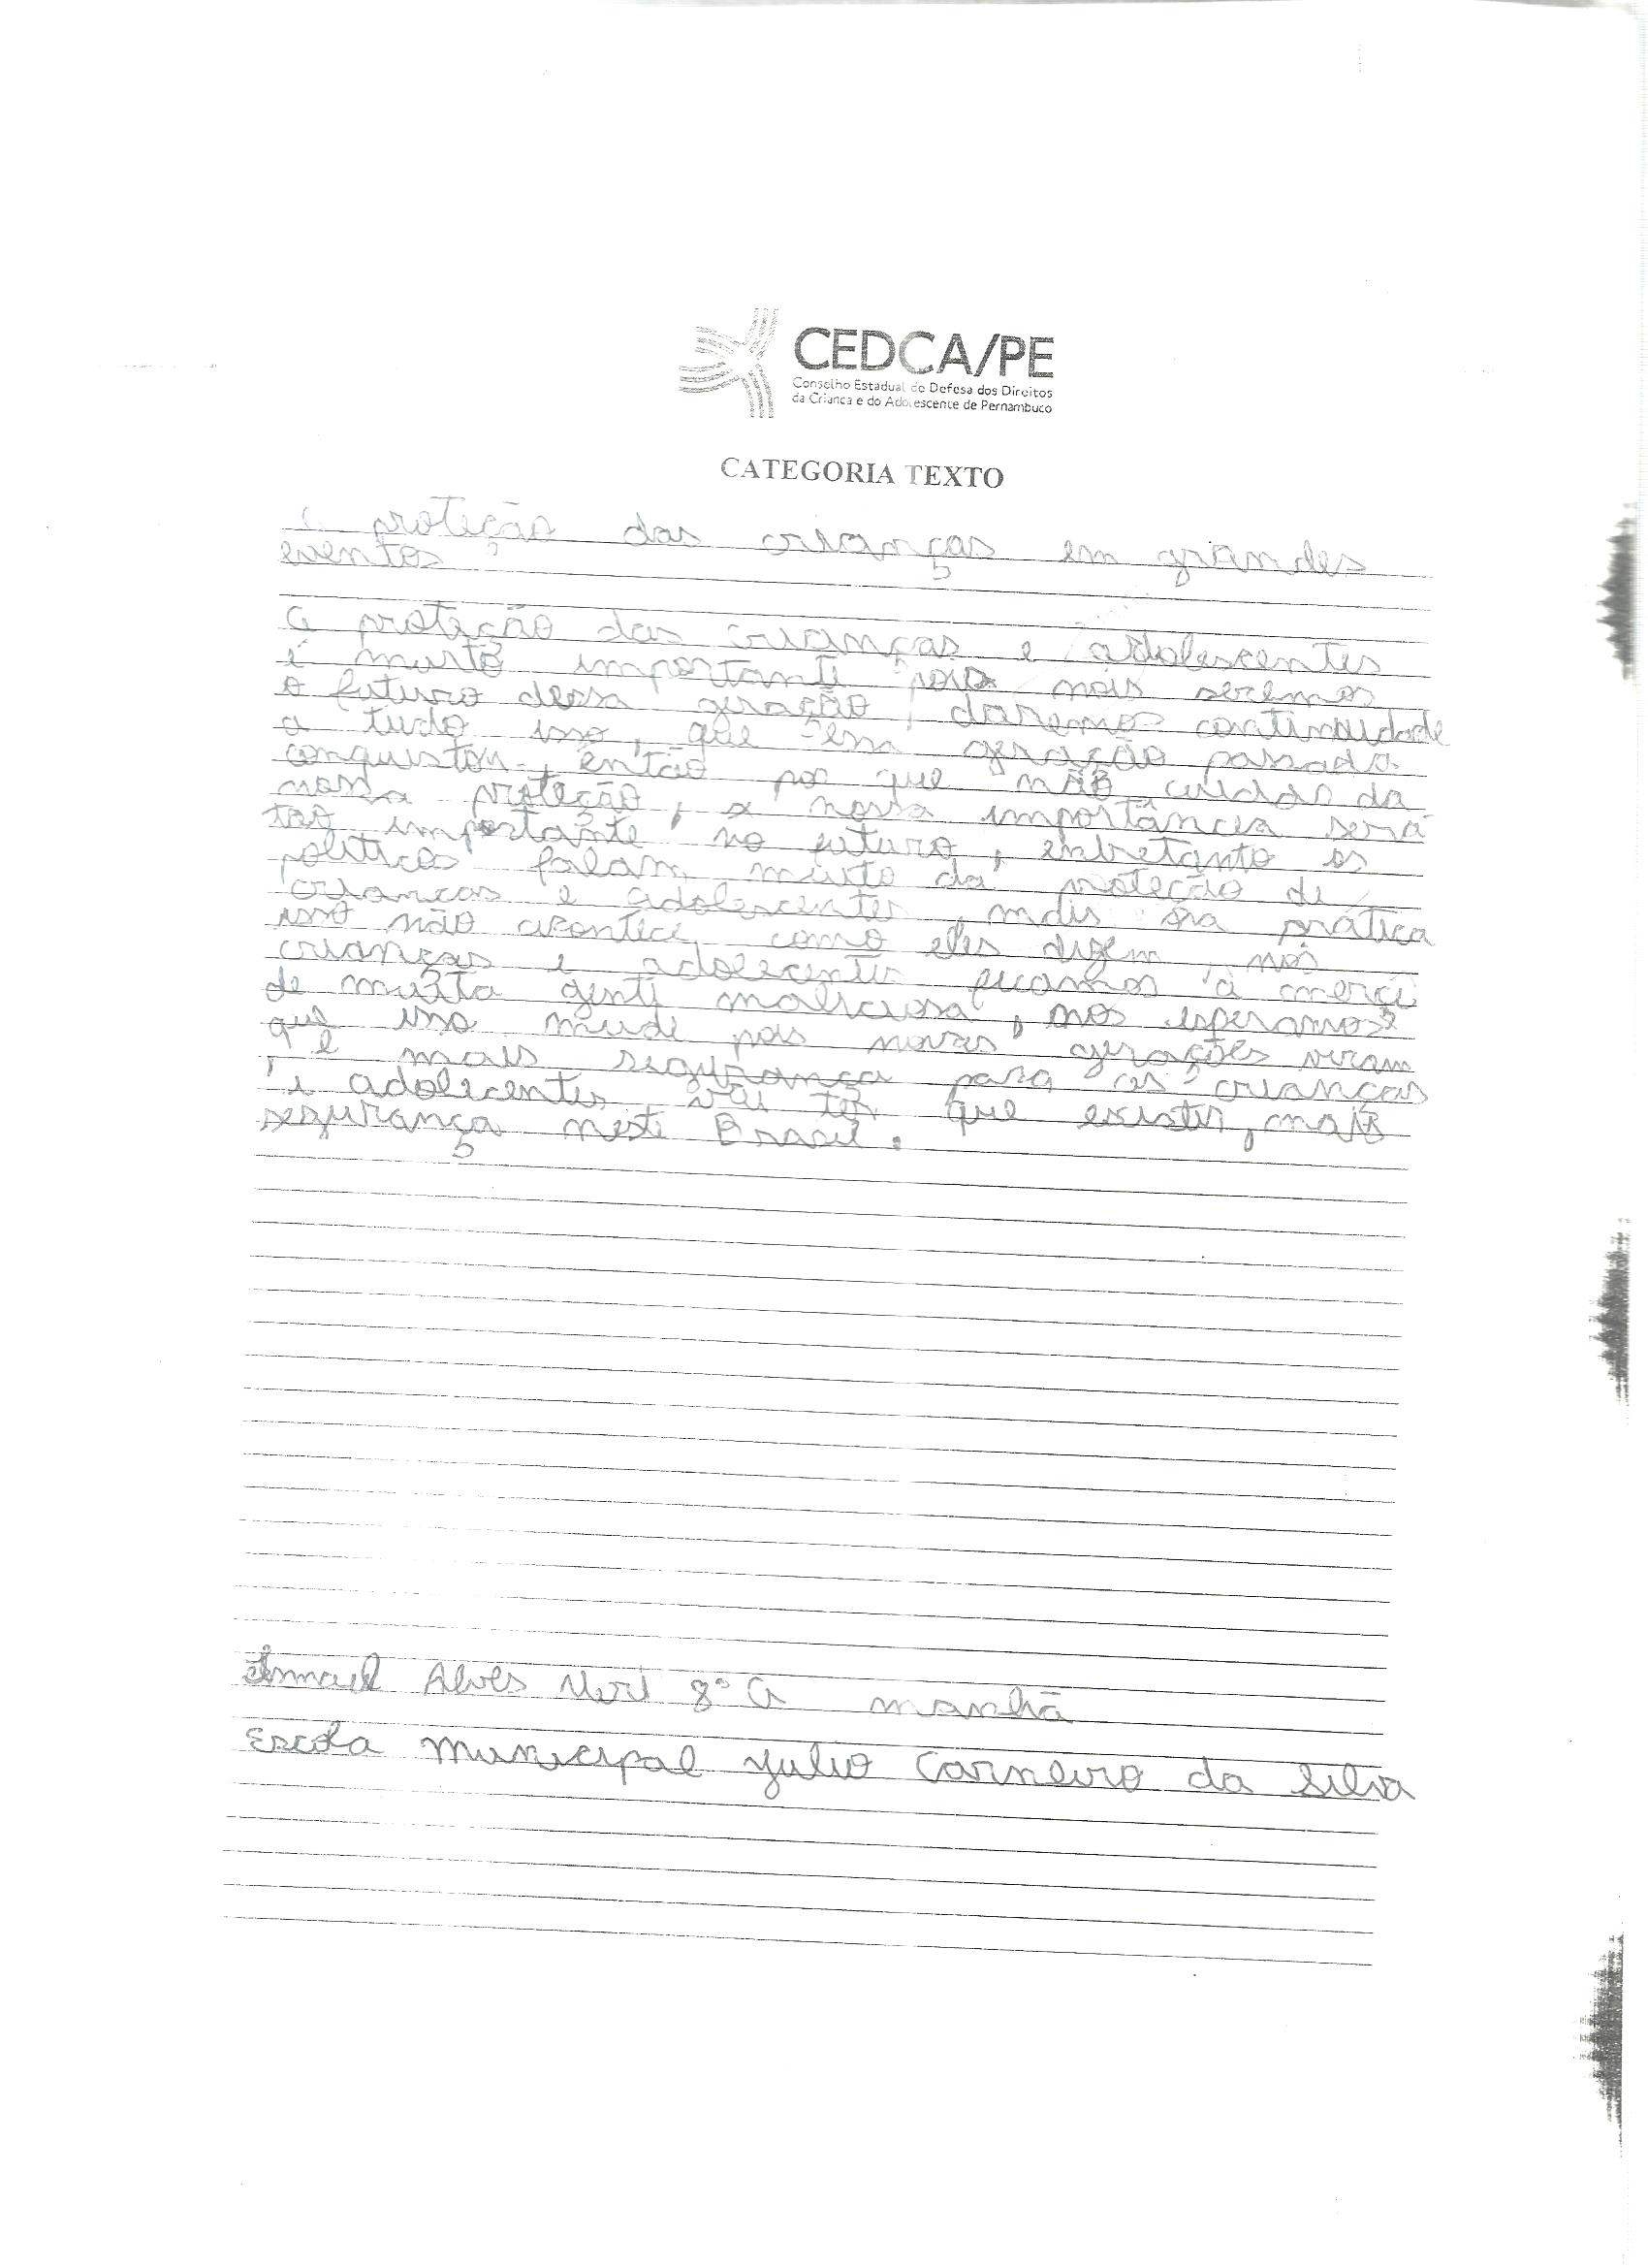 CEDCA/PE
Conselho Estadual de Defesa dos Direitos
da Criança e do Adolescente de Pernambuco
CATEGORIA TEXTO
proteção das crianças em grandes
eventos
A proteção das crianças e adolescentes
é muito importante pois nois seremos
o futuro dessa geração, daremos continuidade
a tudo isso, que essa geração passada
conquistou, então por que não cuidar da
nossa proteção, a nossa importância será
tão importante no futuro, entretanto os
políticos falam muito da proteção de
crianças e adolescentes, mais na prática
isso não acontece, como eles dizem, nós
crianças e adolecentes ficamos à mercê
de muita gente maliciosa, nos esperamos
que isso mude pois novas gerações viram
, e mais segurança para as crianças
e adolecentes vai ter que existir, mais
segurança neste Brasil.
Alves 8º A manhã
Escola municipal Julio Carneiro da Silva